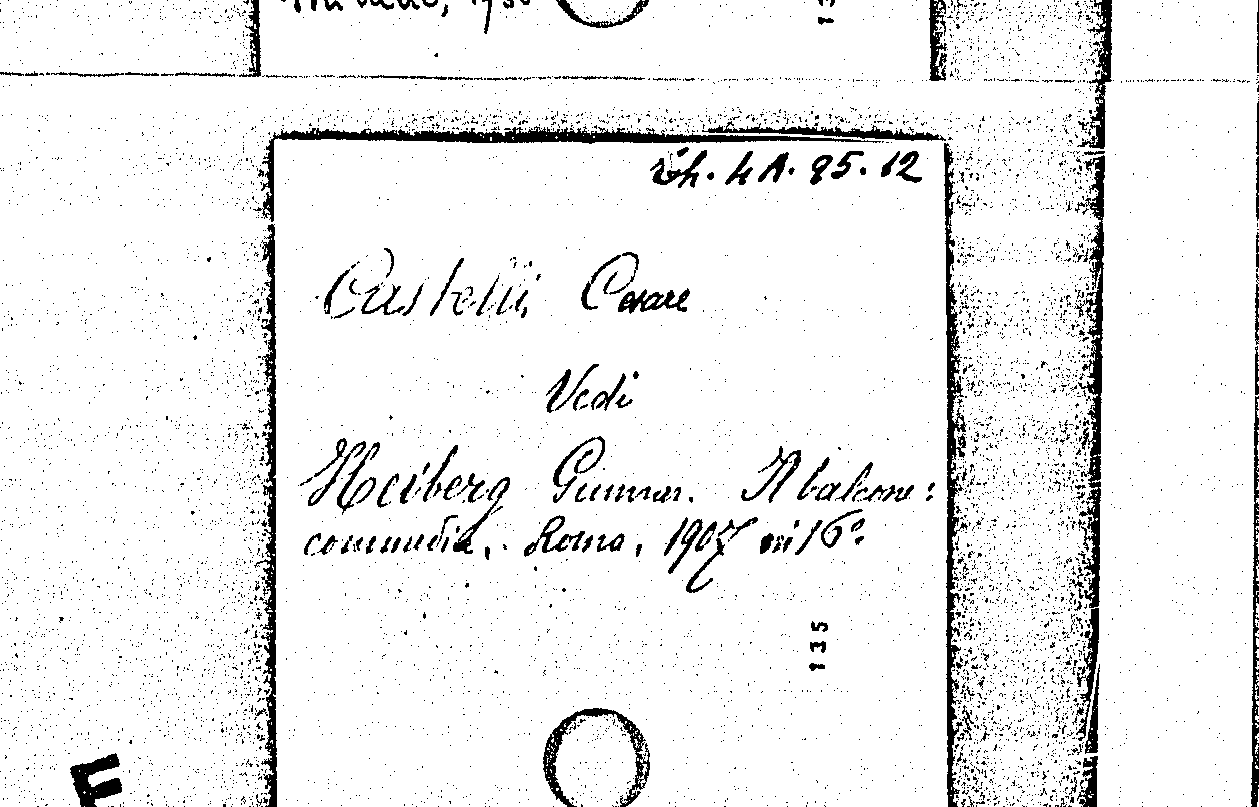 Milano, 193
13
Th. 4 A. 85. 12
Castelli Cesare
Vedi
Heiberg Gunnar. Il balcone:
commedia. Roma, 1907 in 16º.
135
E